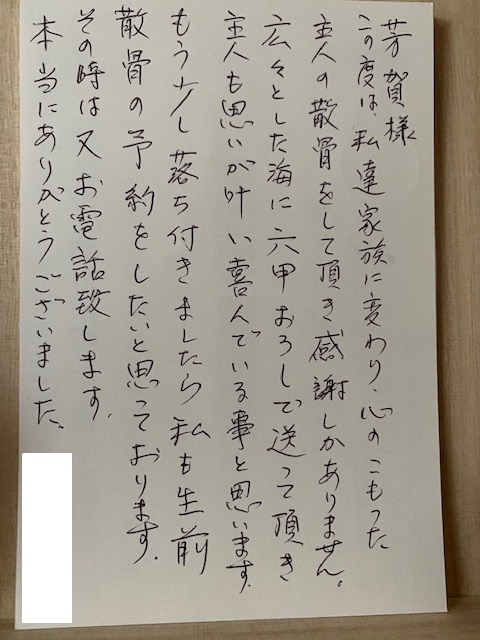 芳賀様
この度は、私達家族に変わり、心のこもった
主人の散骨をして頂き感謝しかありません。
広々とした海に六甲おろしで送って頂き
主人も思いが叶い喜んでいる事と思います。
もう少し落ち付きましたら私も生前
散骨の予約をしたいと思っております。
その時は又お電話致します。
本当にありがとうございました。